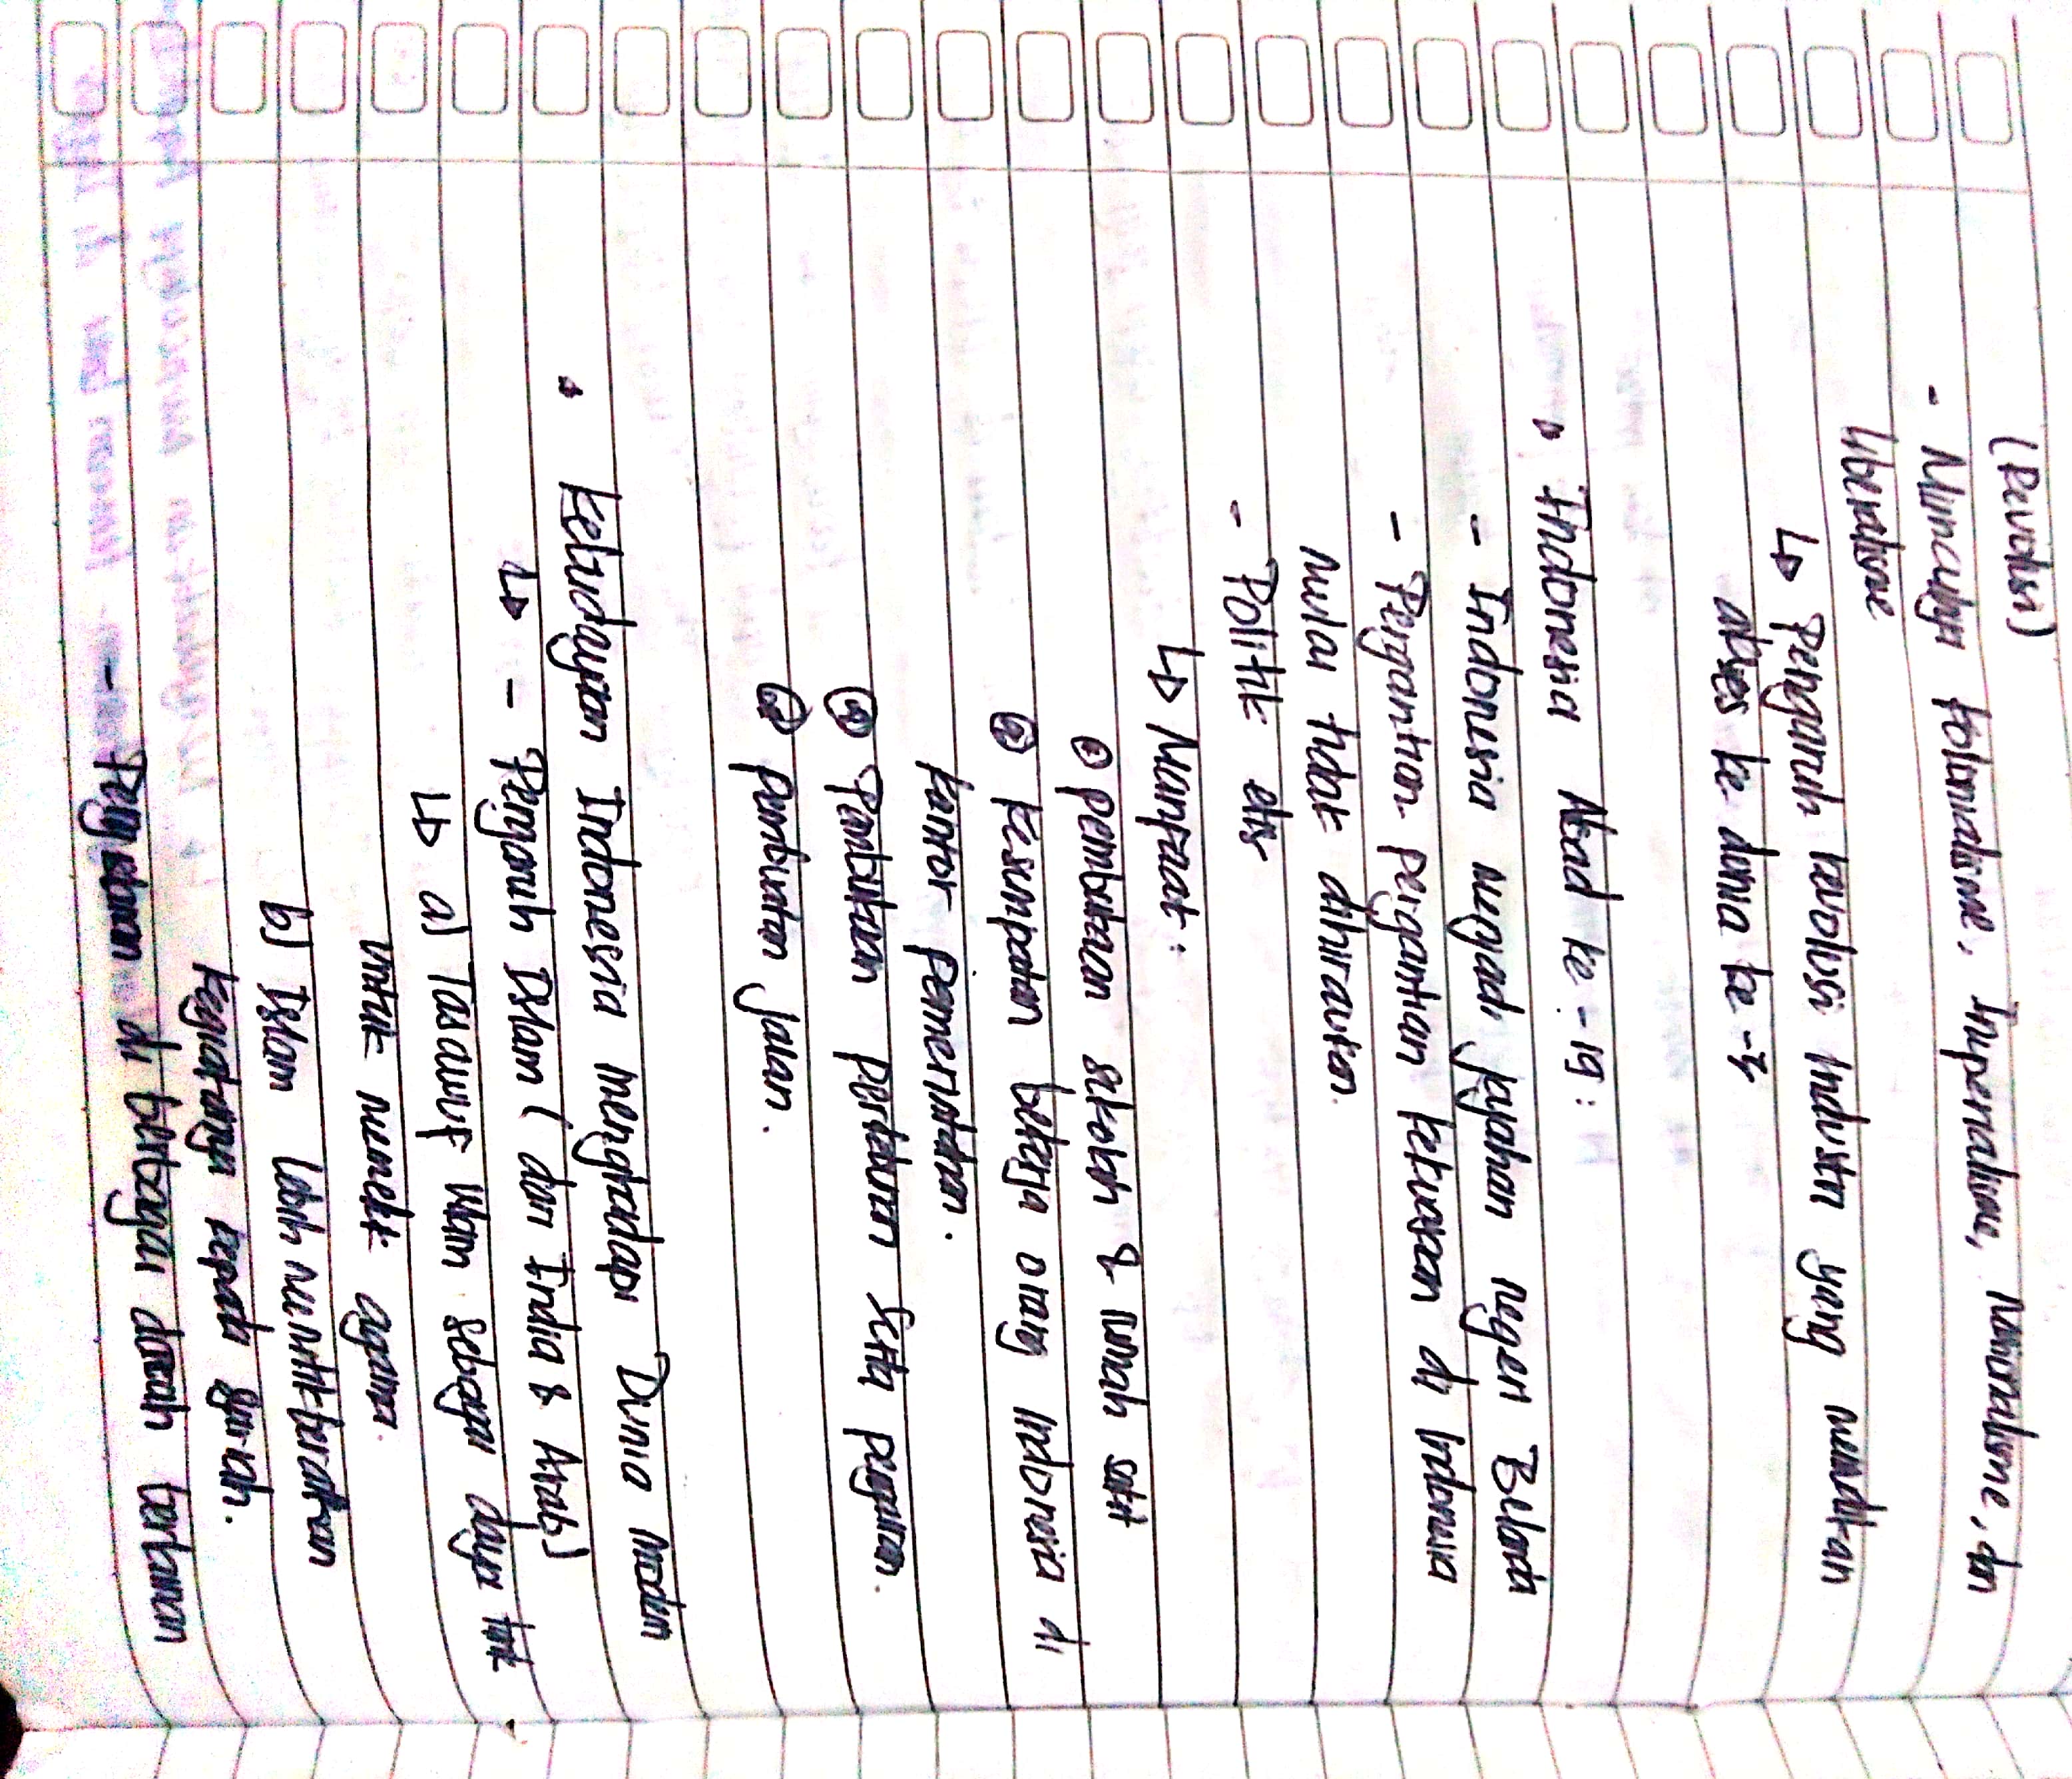 (Revolusi)
- Muncullyn Kolonialisme, Imperialisme, Naturalisme, dan
liberalisme
↳ Pengaruh revolusi Industri yang
akses ke dunia ke-3
• Indonesia Abad ke-19:
- Indonesia mengadi jajahan negeri Belanda
- Pergantian pergantian kekuasaan di Indonesia
mulai tidak dihiraukan.
- Politik etis
↳ Manfaat:
① Pembukaan sekolah & rumah sakit
② Kesempatan bekerja orang Indonesia di
kantor Pemerintahan.
③ Pembukaan perkebunan serta pengairan.
④ Pembuatan jalan.
• Kebudayaan Indonesia menghadapi Dunia modern
↳ - Pengaruh Islam (dari India & Arab)
↳ a) Tasawuf Islam sebagai daya tarik
untuk memeluk agama.
b) Islam lebih menitikberatkan
kepada syari'ah.
- Penyebaran di berbagai daerah terkenan